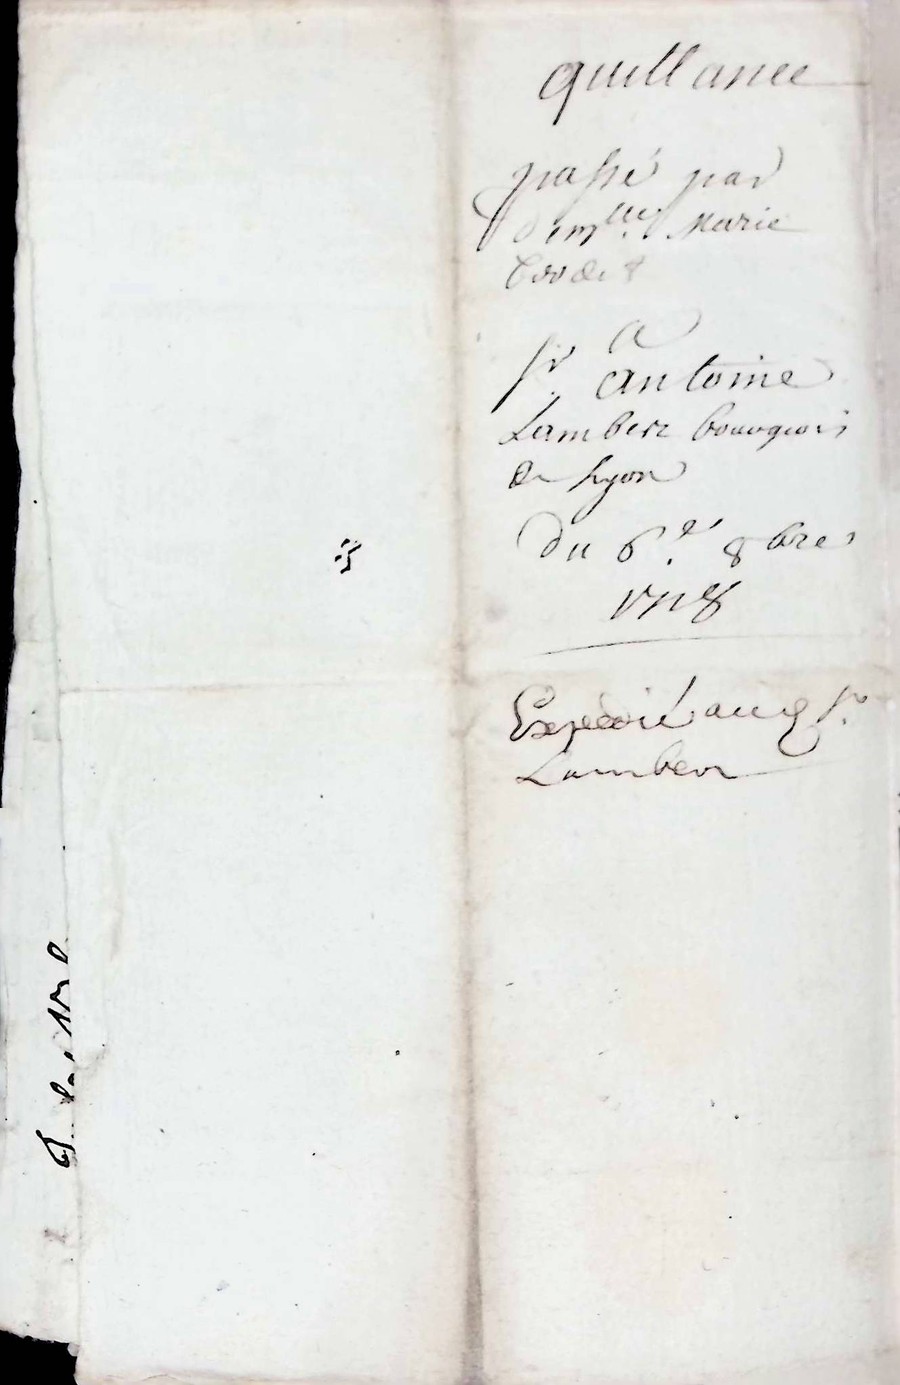 quittance
passé par
dem.lle Marie
a
Sr. antoine
Lambert bourgeois
de Lyon
du 6.e 8bre
1718
Expedié audt Sr.
Lambert